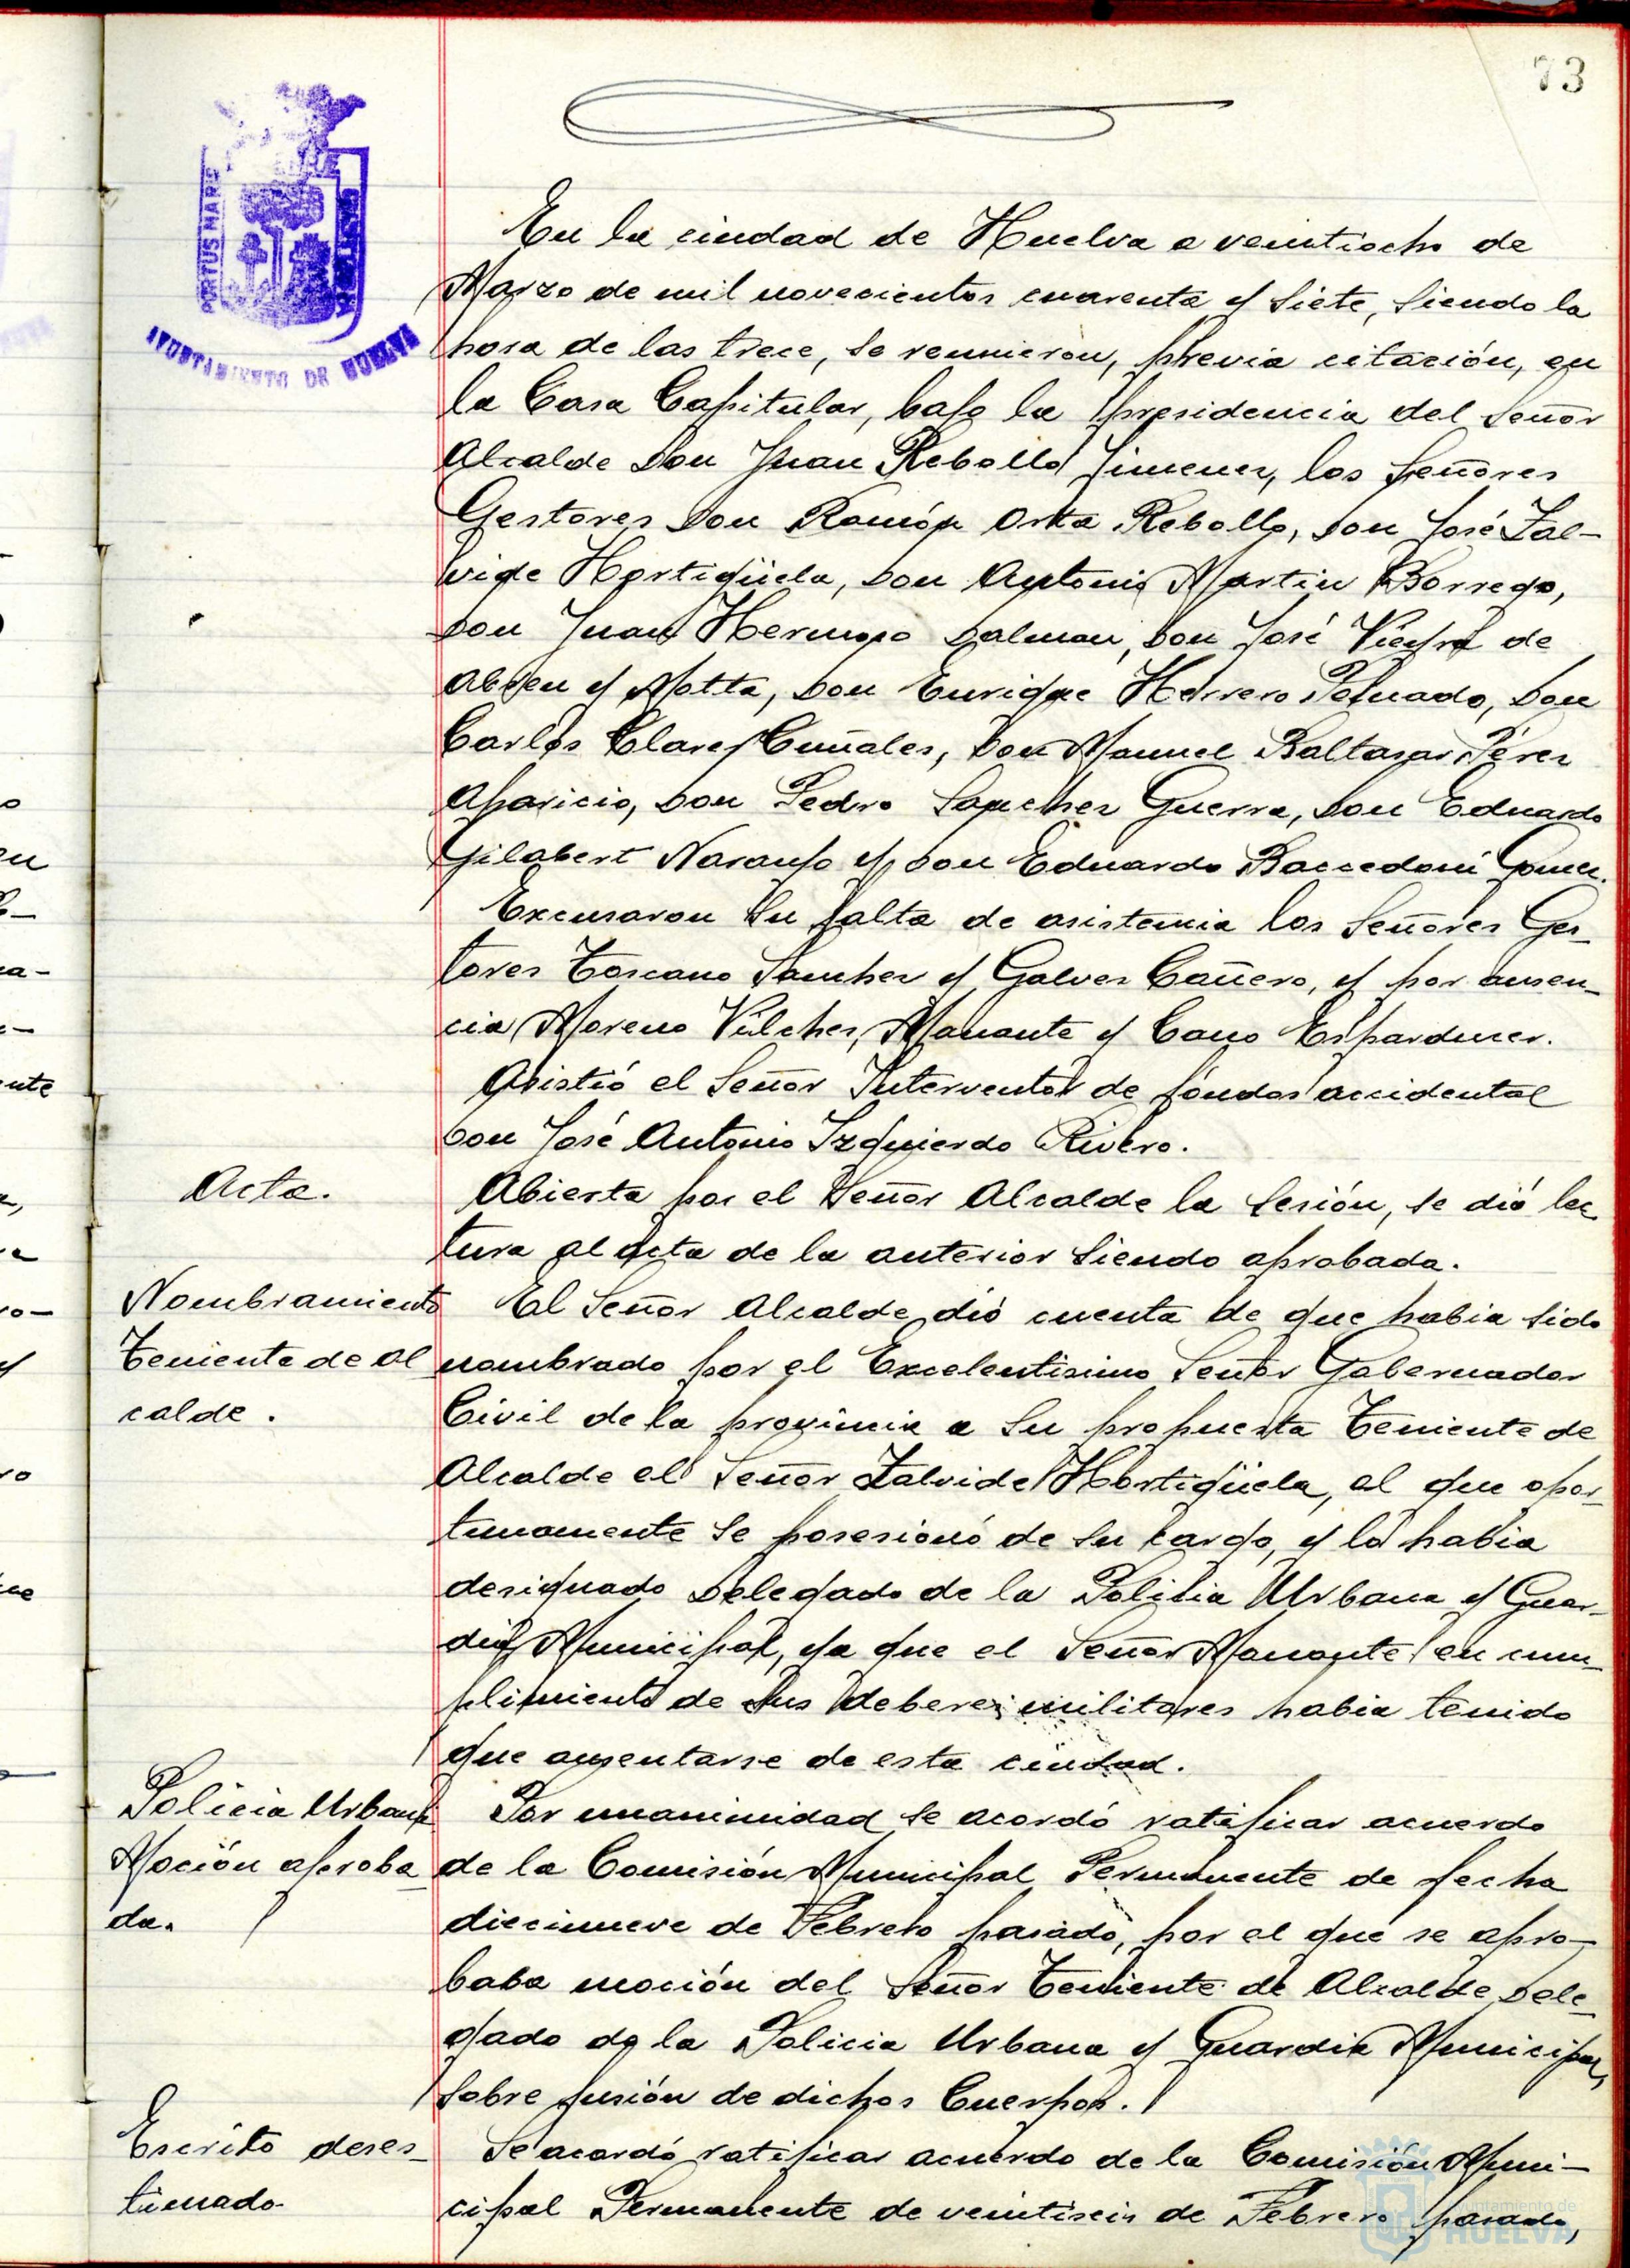 73
PORTUS MARIS
AYUNTAMIENTO DE HUELVA
En la ciudad de Huelva a veintiocho de
Marzo de mil novecientos cuarenta y siete, siendo la
hora de las trece, se reunieron, previa citación, en
la Casa Capitular, bajo la presidencia del Señor
Alcalde Don Juan Rebollo Jimenez, los Señores
Gestores Don Ramón Orta Rebollo, Don José Zal-
vide Hortigüela, Don Antonio Martin Borrego,
Don Juan Hermoso Dalmau, Don José Vieyra de
Abreu y Motta, Don Enrique Herrero Peinado, Don
Carlos Clarey Cuñales, Don Manuel Baltasar Pérez
Aparicio, Don Pedro Sanchez Guerra, Don Eduardo
Gilabert Naranjo y Don Eduardo Baccedoni Gomez.
Excusaron su falta de asistencia los Señores Ges-
tores Toscano Sanchez y Galvez Cañero, y por ausen-
cia Moreno Vilchez, Manante y Cano Esparducer.
Asistió el Señor Interventor de fóndos accidental
Don José Antonio Izquierdo Rivero.
Acta.
Abierta por el Señor Alcalde la sesión, se dió lec
tura al acta de la anterior siendo aprobada.
Nombramiento
Teniente de Al
calde.
El Señor Alcalde dió cuenta de que habia sido
nombrado por el Excelentisimo Señor Gobernador
Civil de la provincia a su propuesta Teniente de
Alcalde el Señor Zalvide Hortigüela, el que opor-
tunamente se posesionó de su cargo, y lo habia
designado Delegado de la Policia Urbana y Guar-
dia Municipal, ya que el Señor Manante en cum-
plimiento de sus deberes militares habia tenido
que ausentarse de esta ciudad.
Policia Urbana
Moción aproba
da.
Por unanimidad se acordó ratificar acuerdo
de la Comisión Municipal Permanente de fecha
diecinueve de Febrero pasado, por el que se apro-
baba moción del Señor Teniente de Alcalde Dele-
gado de la Policia Urbana y Guardia Municipal,
sobre fusión de dichos Cuerpos.
Escrito deses-
timado
Se acordó ratificar acuerdo de la Comisión Muni-
cipal Permanente de veintiseis de Febrero pasado,
Ayuntamiento de
HUELVA